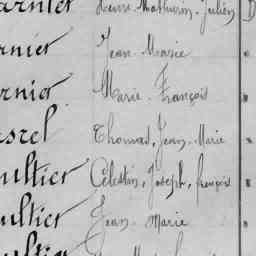 arnier Louis-Mathurin-Julien D
rnier Jean-Marie "
rnier Marie-François "
srel Thomas, Jean-Marie "
ultier Célestin, Joseph, françois "
ultier Jean-Marie "